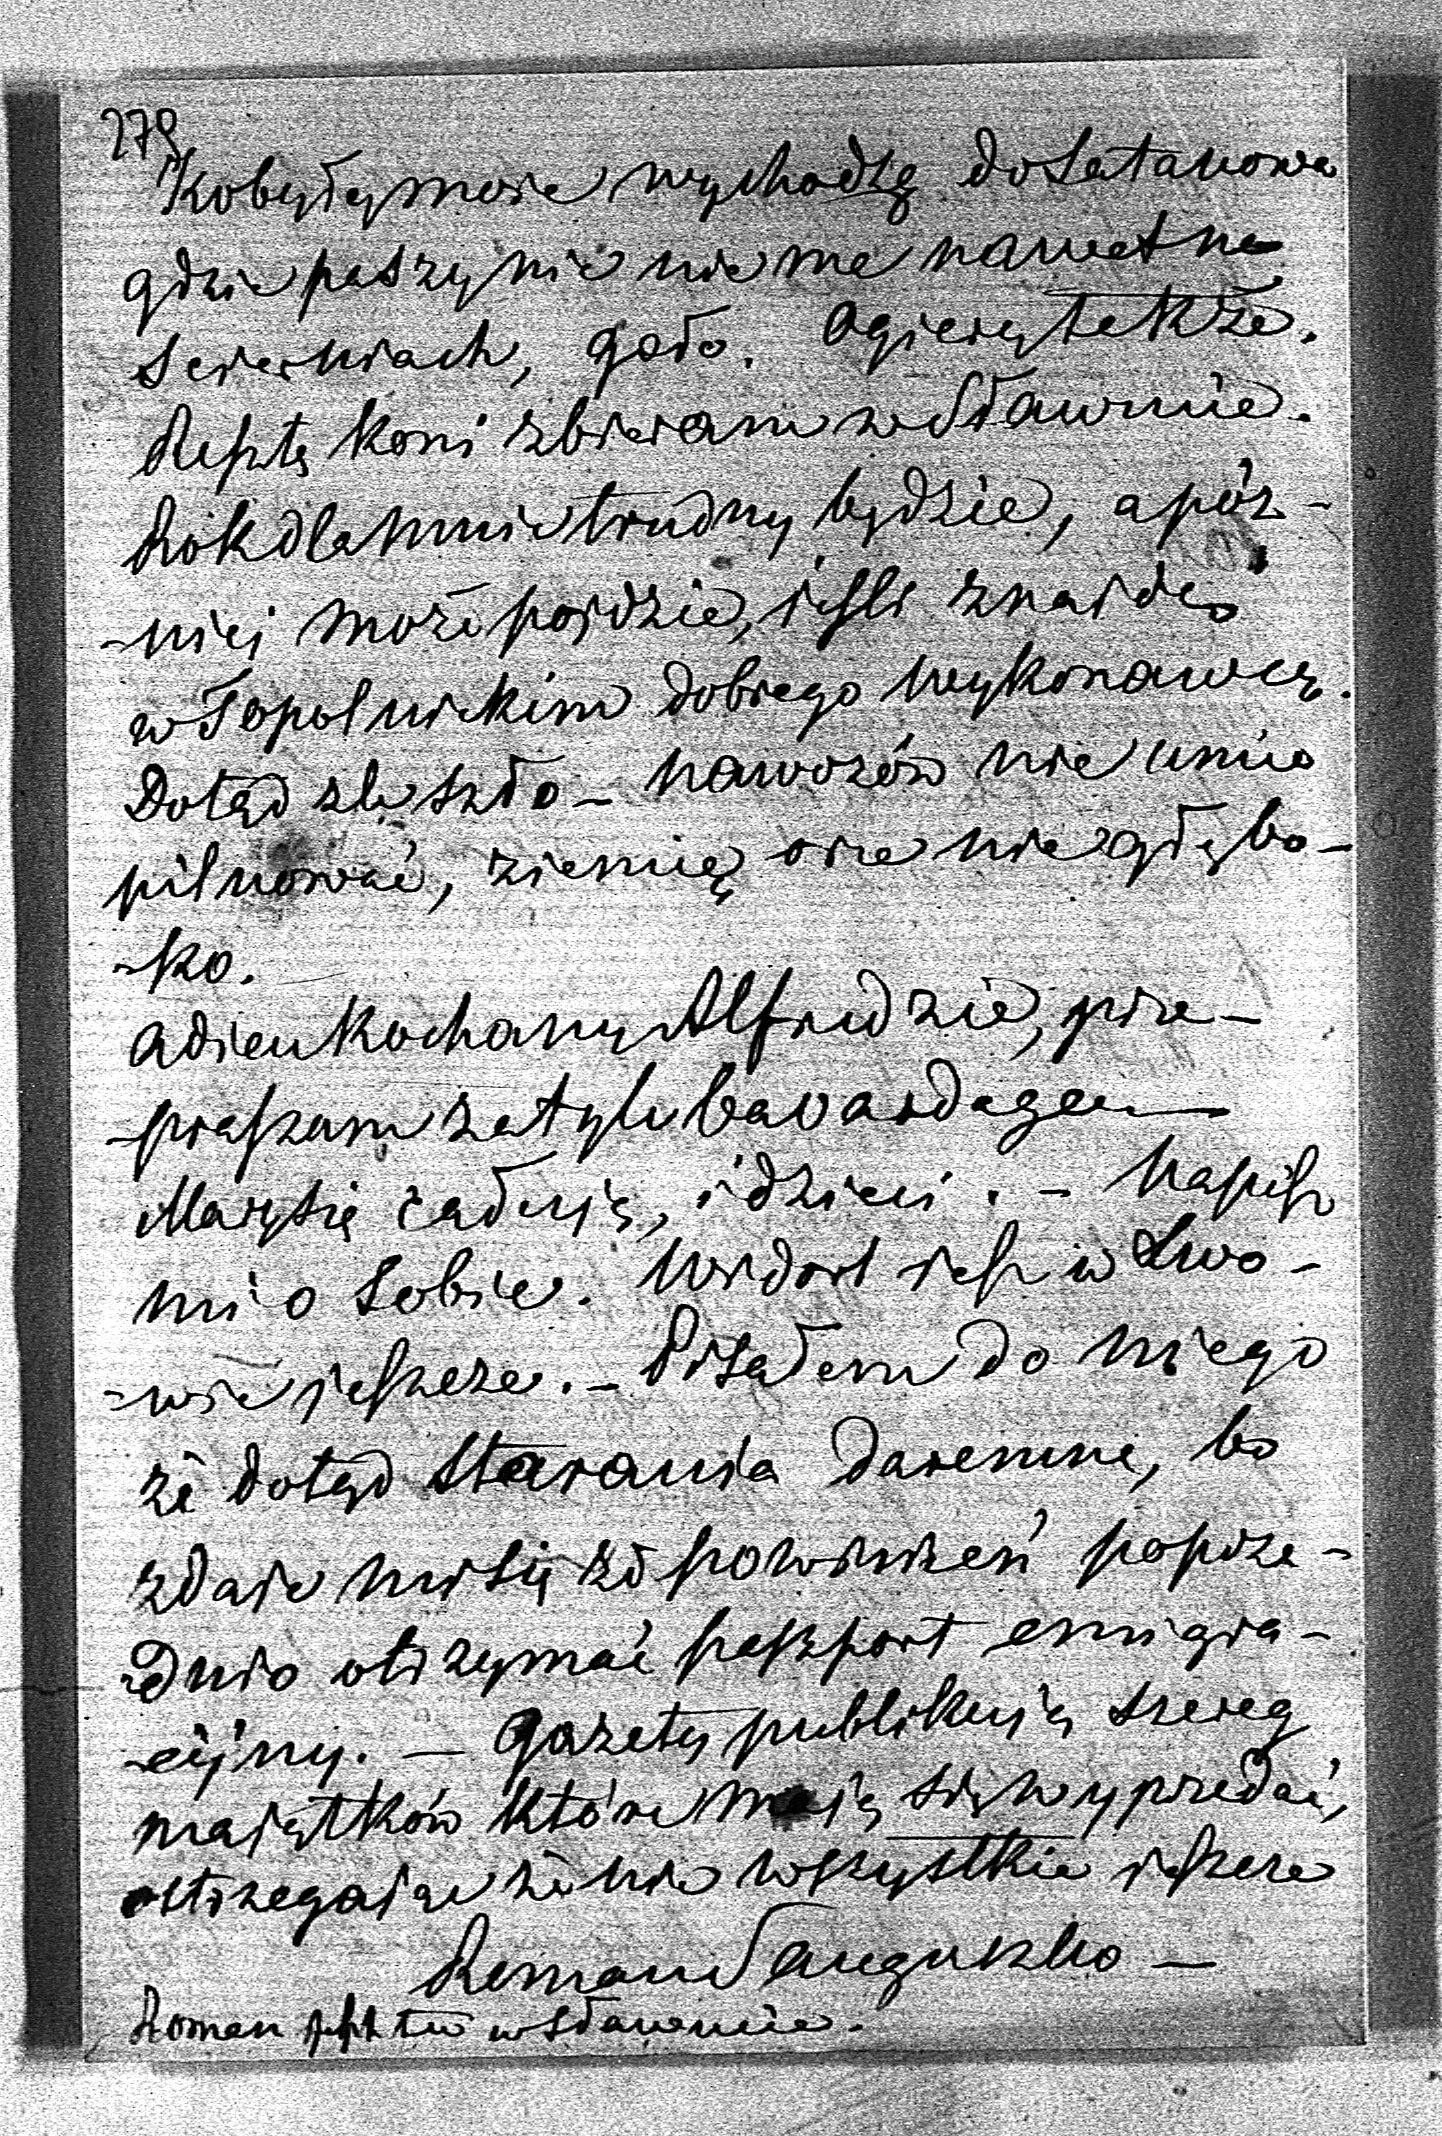 279
Kobyły moje wychodzą do Satanowa
gdzie paszy nic nie ma nawet na
ścierniach, goło. Ogiery także.
Resztę koni zbieram w Sławucie.
Rok dla mnie trudny będzie, a póź-
-niej może pójdzie, jeśli znajdę
w Topolnickim dobrego wykonawcę.
Dotąd źle szło – nawozów nie umie
pilnować, ziemię orze nie głębo-
-ko.
Adieu kochany Alfredzie, prze-
-praszam za tyle bavardage
Marysię całuję, i dzieci. – Napisz
mi o sobie. Widort jest w Lwo-
-wie jeszcze. – Pisałem do niego
że dotąd starania daremne, bo
zdaje mi się że powinien poprze-
-dnio otrzymać paszport emigra-
-cyjny. – Gazety publikują szereg
majątków które mają się wyprzedać,
ostrzegając że nie wszystkie jeszcze
Roman Sanguszko –
Roman jest tu w Sławucie.